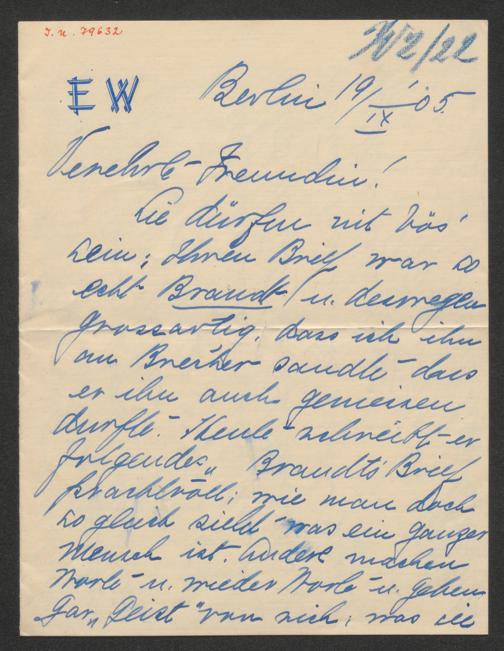 I. N. 79632
EW
Berlin 19/IX '05.
Verehrte Freundin!
Sie dürfen nit bös'
sein; Ihren Brief war so
echt Brandt u. deswegen
grossartig, dass ich ihn
an Brecher sandte dass
er ihn auch geniessen
durfte. Heute schreibt er
folgendes „ Brandts Brief
prachtvoll; wie man doch
so gleich sieht was ein ganzer
Mensch ist. Andere machen
Worte u. wieder Worte u. geben
gar „Geist" von sich; was sie